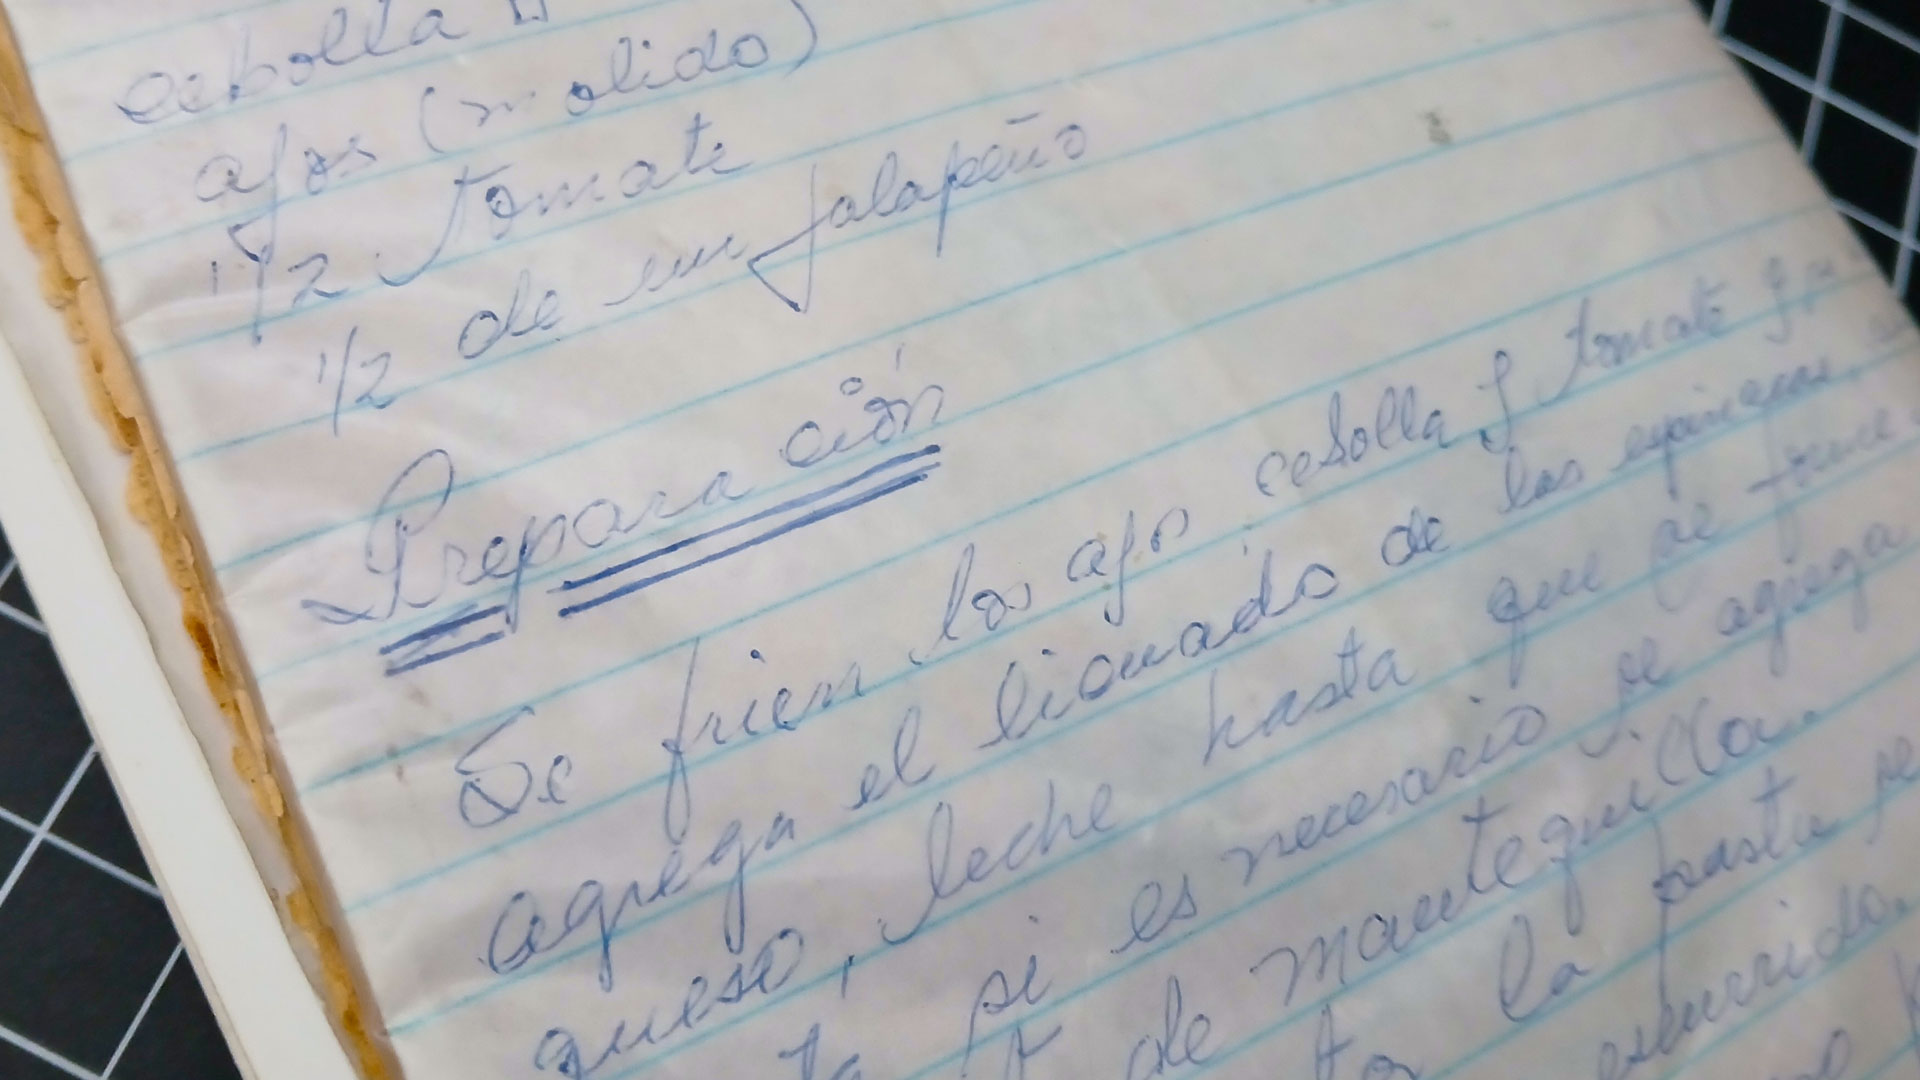 cebolla
ajos (molido)
1/2 tomate
1/2 de un jalapeño
Preparación
Se frien los ajos cebolla y tomate y se
agrega el licuado de las espinacas
queso, leche hasta que se forme
si es necesario se agrega
de mantequilla.
la pasta
escurrida.